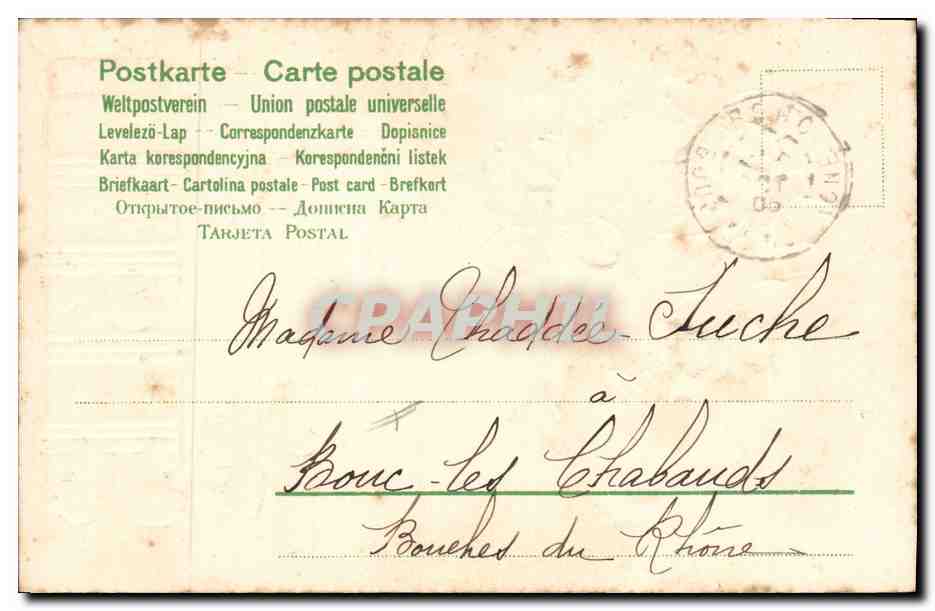 Postkarte – Carte postale
Weltpostverein – Union postale universelle
Levelezö-Lap – Correspondenzkarte Dopisnice
Karta korespondencyjna – Korespondenčni listek
Briefkaart – Cartolina postale – Post card – Brefkort
Открытое-письмо – Дописна Карта
Tarjeta Postal
CPAPHIL
Madame Thaddée Fuche
à
Bouc-les Chabauds
Bouches du Rhône